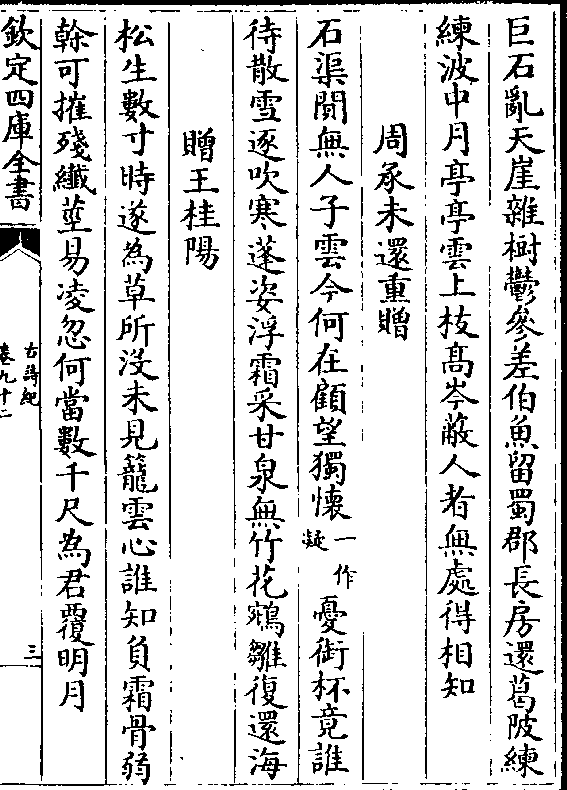 巨石亂天崖雜樹鬱參差伯魚留蜀郡長房還葛陂練
練波中月亭亭雲上枝髙岑蔽人者無處得相知
周承未還重贈
石渠閴無人子雲今何在顧望獨懐一作凝憂銜杯竟誰
待散雪逐吹寒蓬姿浮霜采甘泉無竹花鵷雛復還海
贈王桂陽
松生數寸時遂為草所沒未見籠雲心誰知負霜骨弱
榦可摧殘纎莖易凌忽何當數千尺為君覆明月
欽定四庫全書
古詩紀
卷九十二
三